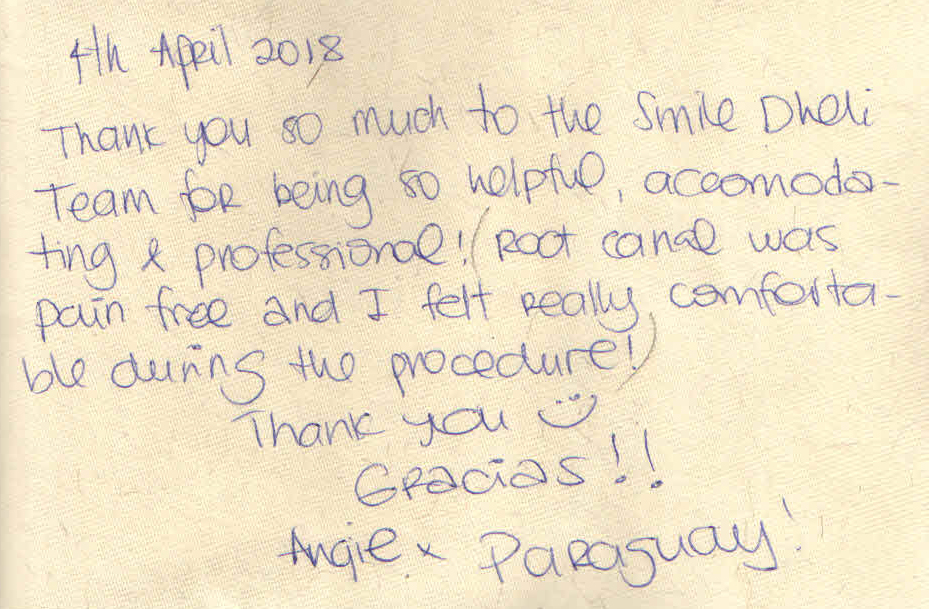 4th April 2018
Thank you so much to the Smile Dheli
Team for being so helpful, accomoda-
ting & professional! (Root canal was
pain free and I felt really comforta-
ble during the procedure!)
Thank you :)
Gracias!!
Angie x Paraguay!